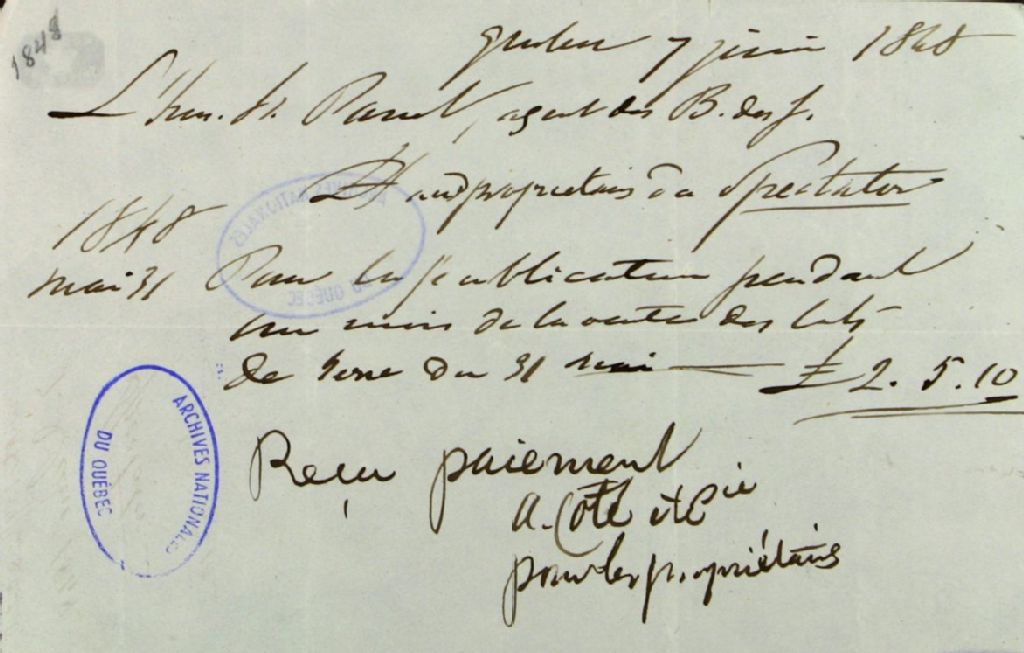 1848
Quebec 7 juin 1848
L'Hon. Et. Parent, agent des B. des J.
Dt aux propriétaires du Spectator
1848
mai 31 Pour la publication pendant
un mois de la vente des lots
de terre du 31 mai — £ 2. 5. 10
Reçu paiement
A. Coté et Cie
pour les propriétaires
ARCHIVES NATIONALES
DU QUÉBEC
ARCHIVES NATIONALES
DU QUÉBEC